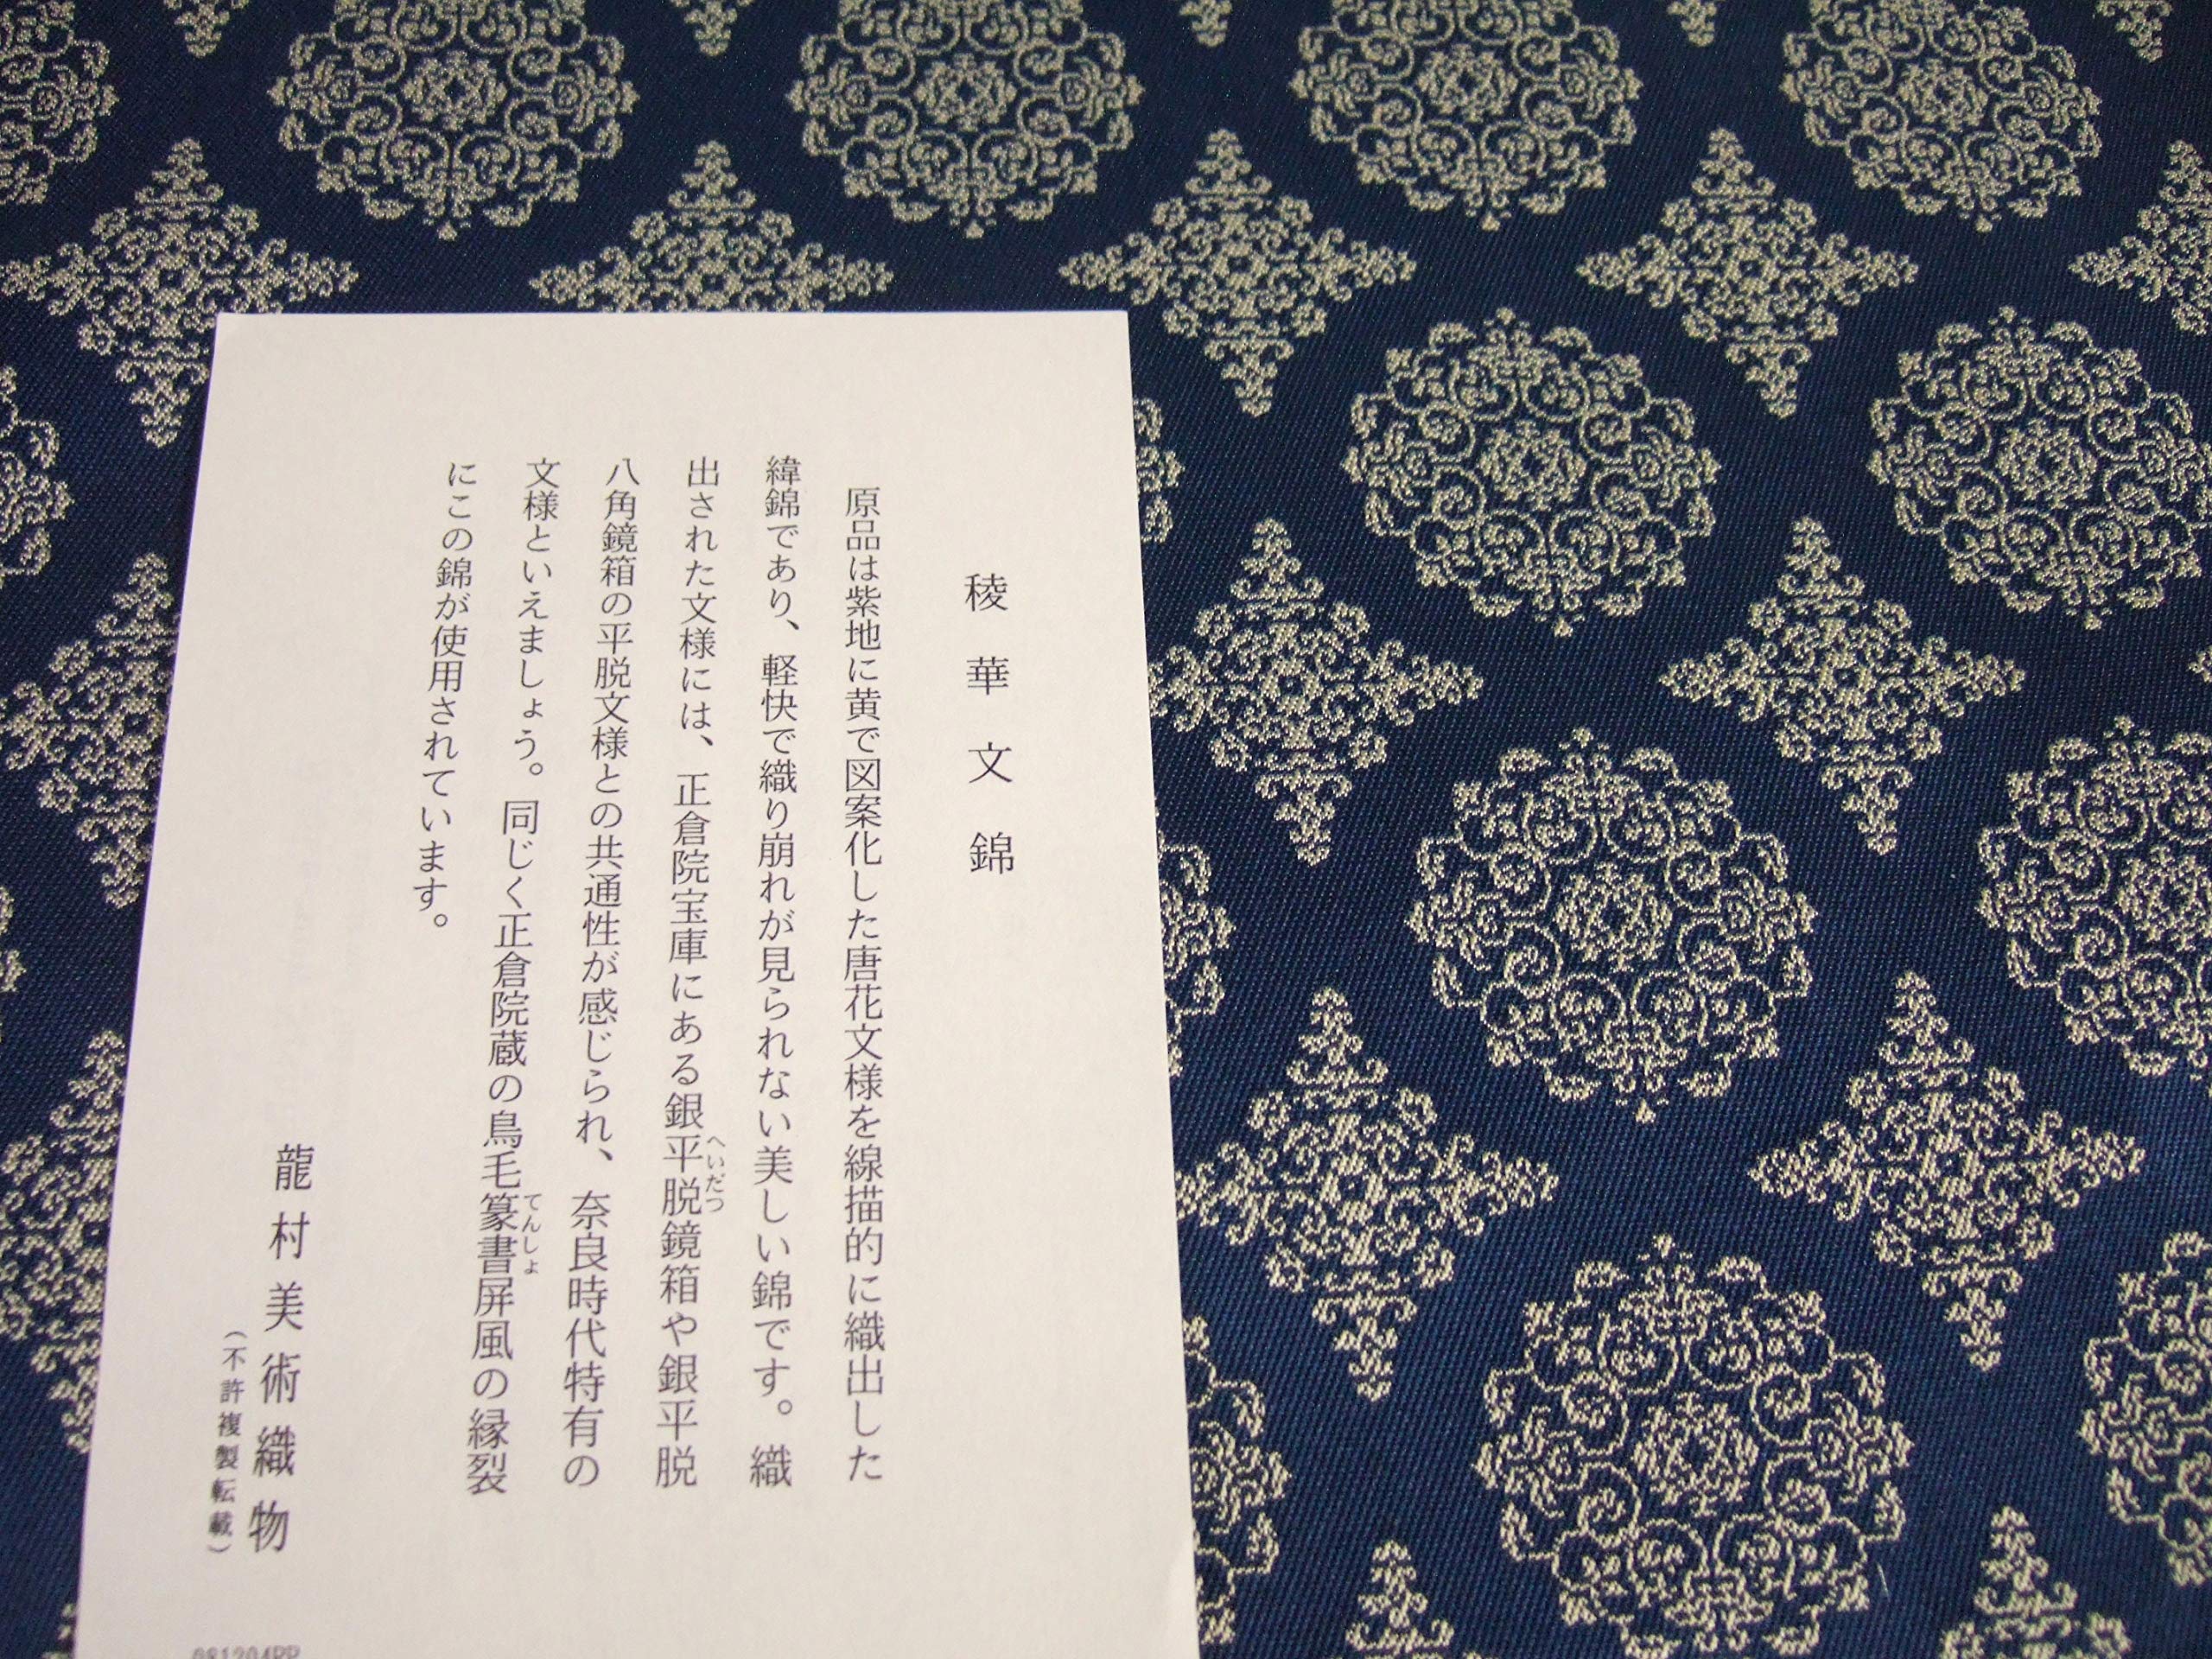 稜華文錦
原品は紫地に黄で図案化した唐花文様を線描的に織出した
緯錦であり、軽快で織り崩れが見られない美しい錦です。織
出された文様には、正倉院宝庫にある銀平脱鏡箱や銀平脱
へいだつ
八角鏡箱の平脱文様との共通性が感じられ、奈良時代特有の
文様といえましょう。同じく正倉院蔵の鳥毛篆書屏風の縁裂
てんしょ
にこの錦が使用されています。
龍村美術織物
(不許複製転載)